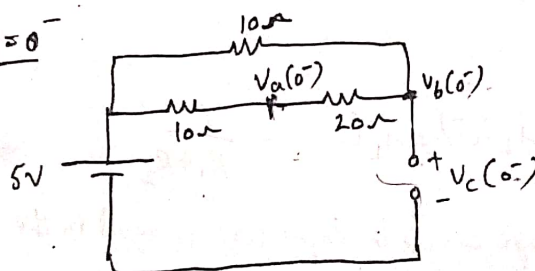 = 0⁻
10Ω
Va(0⁻)
Vb(0⁻)
10Ω
20Ω
5V
+
Vc(0⁻)
-